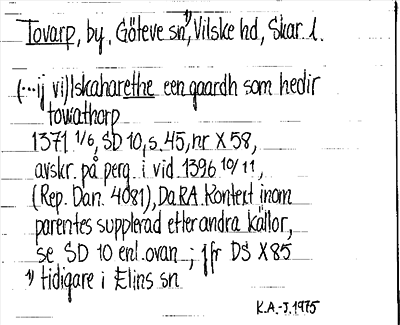 Tovarp, by, Göteve sn¹⁾, Vilske hd, Skar. l.
(...ij vi) Iskaharethe een gaardh som hedir
towathorp
1371 1/6, SD 10, s. 45, nr X 58,
avskr. på perg. i vid. 1396 10/11,
(Rep. Dan. 4081), DaRA. Kontext inom
parentes supplerad efter andra källor,
se SD 10 enl. ovan; jfr DS X 85
¹⁾ tidigare i Elins sn
K.A.-J. 1975